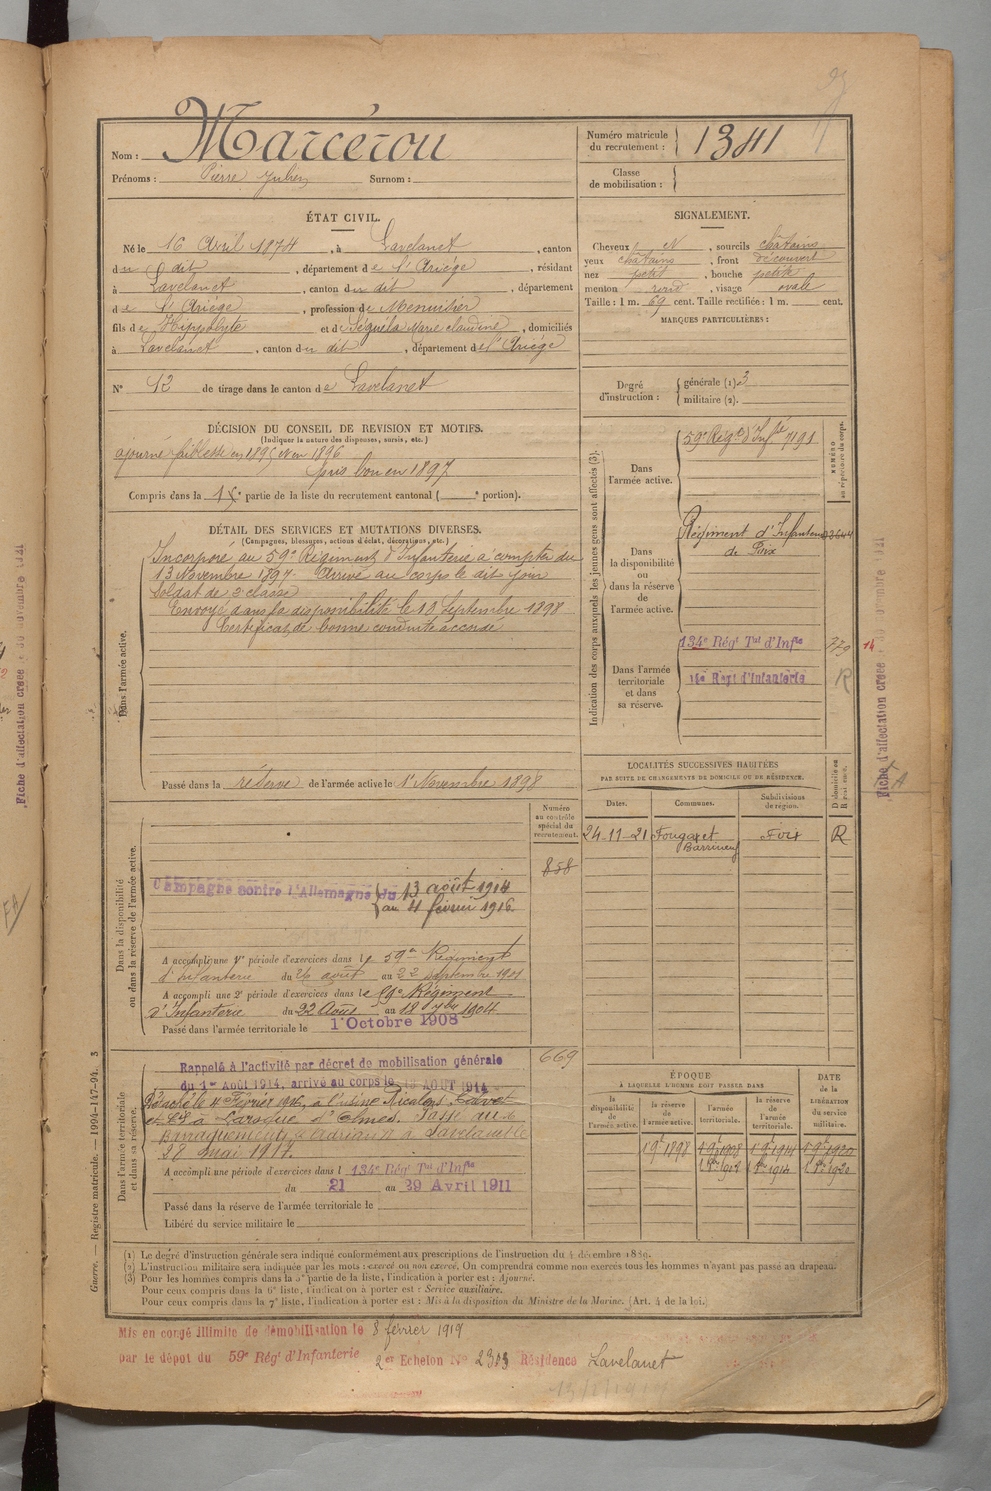 Marcérou
Nom :
Prénoms : Pierre Julien Surnom :
Numéro matricule
du recrutement : 1341
Classe
de mobilisation :
ÉTAT CIVIL.
Né le 16 Avril 1874, à Lavelanet, canton
du dit, département de l'Ariège, résidant
à Lavelanet, canton du dit, département
de l'Ariège, profession de Menuisier
fils de Hippolyte et de Séguéla Marie Claudine, domiciliés
à Lavelanet, canton du dit, département de l'Ariège
N° 12 de tirage dans le canton de Lavelanet
SIGNALEMENT.
Cheveux N, sourcils châtains
yeux châtains, front découvert
nez petit, bouche petite
menton rond, visage ovale
Taille : 1 m. 69 cent. Taille rectifiée : 1 m. cent.
MARQUES PARTICULIÈRES :
Degré
d'instruction :
générale (1) 3
militaire (2).
DÉCISION DU CONSEIL DE REVISION ET MOTIFS.
(Indiquer la nature des dispenses, sursis, etc.)
ajourné faiblesse en 1895 et en 1896
pris bon en 1897
Compris dans la partie de la liste du recrutement cantonal ( e portion).
DÉTAIL DES SERVICES ET MUTATIONS DIVERSES.
(Campagnes, blessures, actions d'éclat, décorations, etc.)
Dans l'armée active.
Incorporé au 59e Régiment d'Infanterie à compter du
13 Novembre 1897. Arrivé au corps le dit jour
Soldat de 2e classe
Envoyé dans la disponibilité le 19 Septembre 1898
Certificat de bonne conduite accordé
Passé dans la réserve de l'armée active le 1er Novembre 1898
Indication des corps auxquels les jeunes gens sont affectés (3).
NUMÉRO
au répertoire du corps.
Dans
l'armée active.
59e Régt d'Infie 7191
Dans
la disponibilité
ou
dans la réserve
de
l'armée active.
Régiment d'Infanterie
de Foix
Dans l'armée
territoriale
et dans
sa réserve.
134e Régt Tal d'Infie 779
14
Régt d'Infanterie
R
Fiche d'affectation créée le
Fiche d'affectation créée le 30 novembre 1921
LOCALITÉS SUCCESSIVES HABITÉES
PAR SUITE DE CHANGEMENTS DE DOMICILE OU DE RÉSIDENCE.
Dates. Communes. Subdivisions
de région.
D domicile ou
R résidence.
24-11-21 Fougax et Foix R
Barrineuf
Dans la disponibilité
ou dans la réserve de l'armée active.
Numéro
au contrôle
spécial du
recrutement.
858
Campagne contre l'Allemagne du 13 août 1914
au 4 février 1916
A accompli une 1re période d'exercices dans le 59e Régiment
d'Infanterie du 26 août au 22 septembre 1901
A accompli une 2e période d'exercices dans le 59e Régiment
d'Infanterie du 22 Août au 18 7bre 1904
Passé dans l'armée territoriale le 1er Octobre 1908
Dans l'armée territoriale
et dans sa réserve.
669
Rappelé à l'activité par décret de mobilisation générale
du 1er Août 1914, arrivé au corps le 13 AOUT 1914
Détaché le 4 Février 1916, à l'usine Ricalens
à Laroque d'Olmes. Passé aux
à Lavelanet le
28 Mai 1917.
A accompli une période d'exercices dans l 134e Régt Tal d'Infie
du 21 au 29 Avril 1911
Passé dans la réserve de l'armée territoriale le
Libéré du service militaire le
ÉPOQUE
À LAQUELLE L'HOMME DOIT PASSER DANS
DATE
de la
LIBÉRATION
du service
militaire.
la
disponibilité
de
l'armée active.
la réserve
de
l'armée active.
l'armée
territoriale.
la réserve
de
l'armée
territoriale.
1 9bre 1898 1 9bre 1908 1 9bre 1914 1 9bre 1920
1 8bre 1914 1 8bre 1920
(1) Le degré d'instruction générale sera indiqué conformément aux prescriptions de l'instruction du 4 décembre 1889.
(2) L'instruction militaire sera indiquée par les mots : exercé ou non exercé. On comprendra comme non exercés tous les hommes n'ayant pas passé au drapeau.
(3) Pour les hommes compris dans la 5e partie de la liste, l'indication à porter est : Ajourné.
Pour ceux compris dans la 6e liste, l'indication à porter est : Service auxiliaire.
Pour ceux compris dans la 7e liste, l'indication à porter est : Mis à la disposition du Ministre de la Marine. (Art. 4 de la loi.)
Guerre. — Registre matricule. — 1994-147-94. 3
Mis en congé illimité de démobilisation le 8 février 1919
par le dépôt du 59e Régt d'Infanterie 2er Echelon N° 2303 Résidence Lavelanet